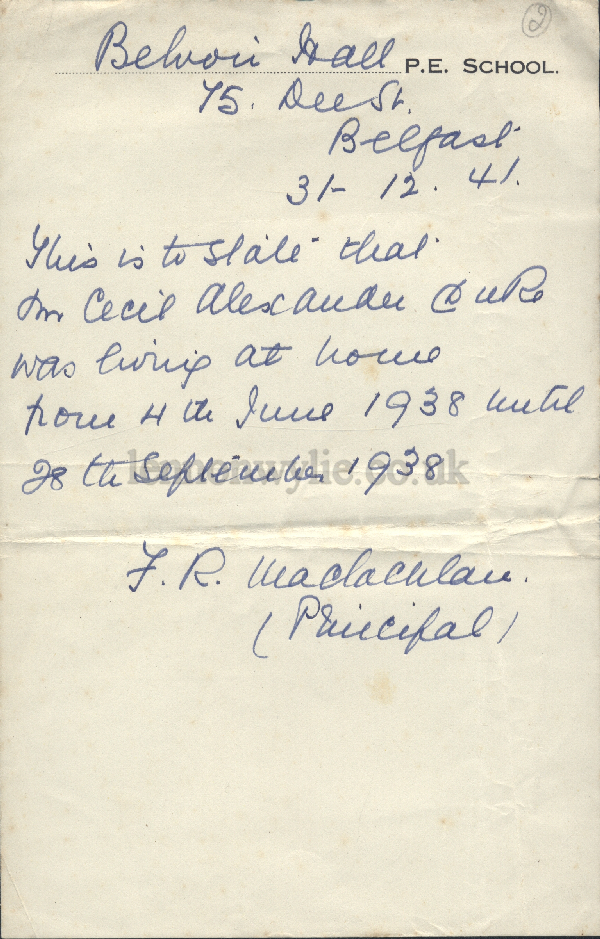 2
Belvoir Hall P.E. SCHOOL.
75. Dee St.
Belfast
31- 12. 41.
This is to state that
Mr Cecil Alexander Duke
was living at home
from 4th June 1938 until
28th September 1938
lennonwylie.co.uk
F. R. Maclachlan.
(Principal)